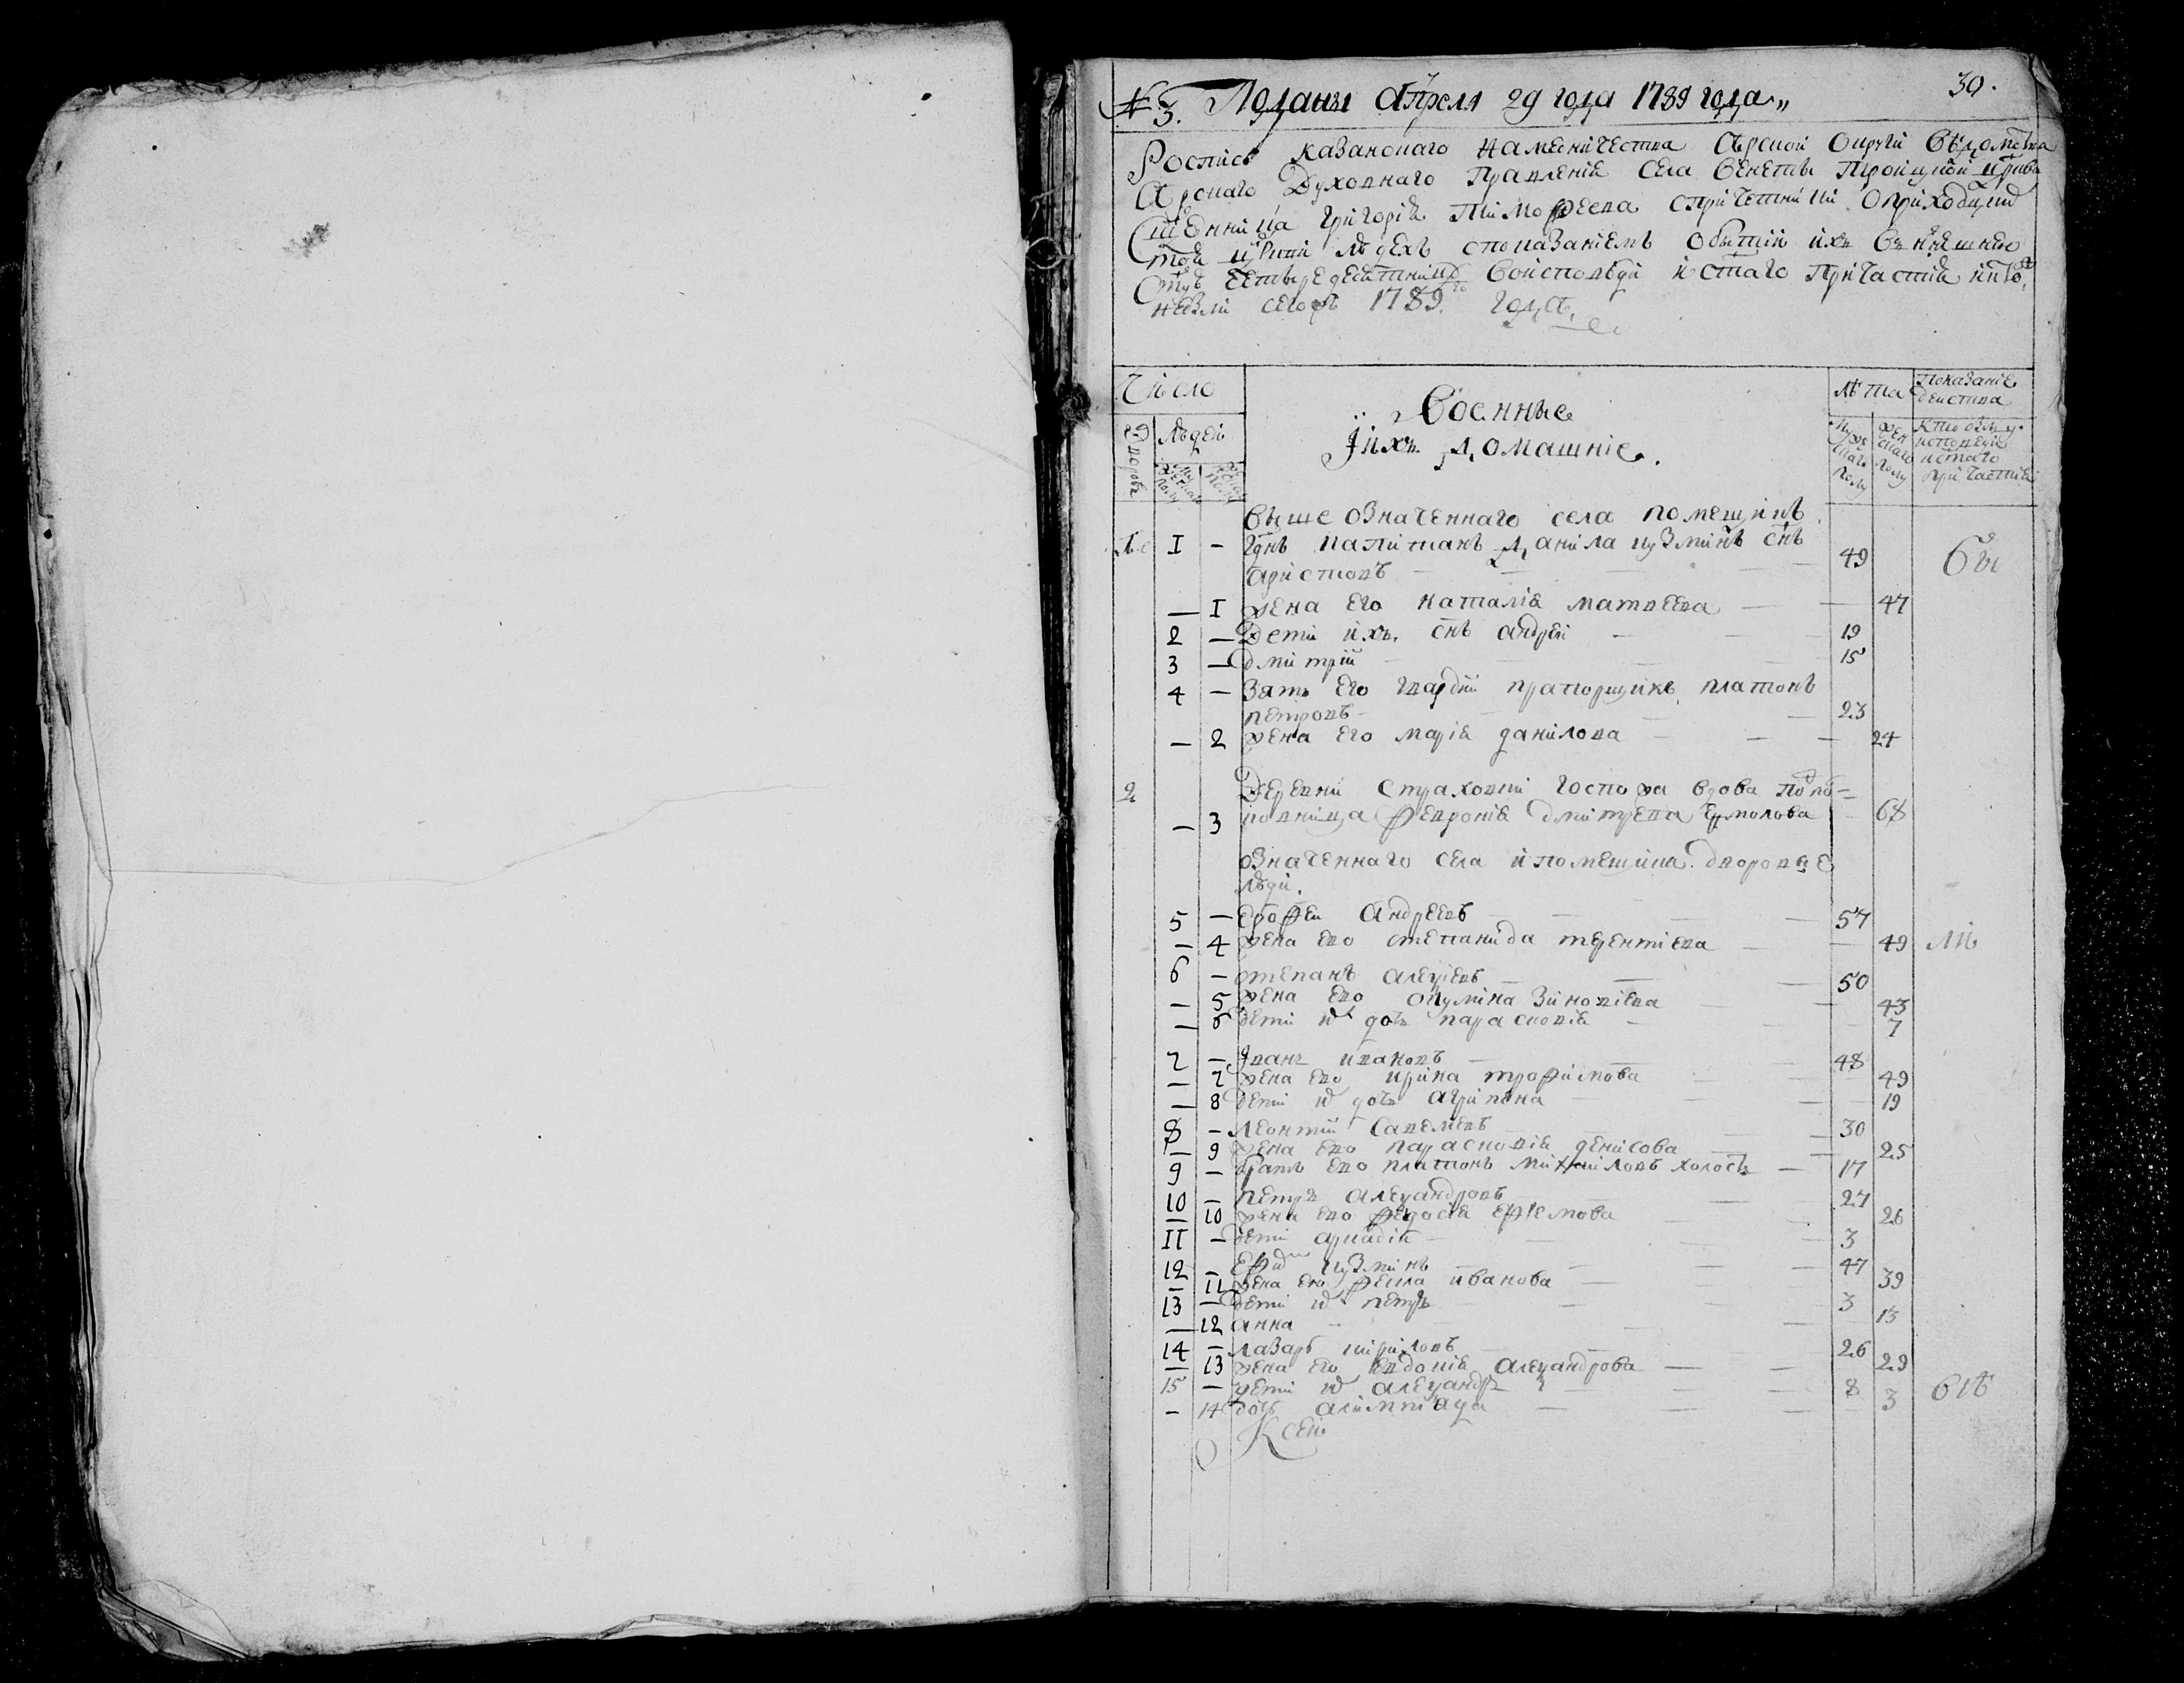 № 3. Поданы Апреля 29 года 1789 года„
30.
Роспись казанскаго намесничества Арской округи вѣдомства
Арскаго Духовнаго Правления села Венеты Троицкой
Священника Григория Тимофеева с причетники о приходящих
той церкви людехъ с показаниемъ о бытии ихъ в нынешнюю
Стую четыредесятницу во исповеди и стаго Причастия
недели сегожъ 1789 го года
Число
Военные
Iихъ домашние.
Лѣта
Показание
действа
Дворовъ
Людей
Мужескаго полу
Женскаго полу
Мужескаго полу
Женскаго полу
Кто былъ у
исповеди
и стаго
причастия
выше означеннаго села помещикъ
I – Гднъ капитанъ данила кузминъ снъ
аристовъ 49
– I жена его наталия матвеева 47
2 – дети ихъ снъ андреи 19
3 – дмитрий 15
4 – Зять его гвардии прапорщикъ платонъ
петровъ 23
– 2 жена его мария данилова 24
2 Деревни Страховки госпожа вдова
– 3 феврония дмитрева Ермолова 68
означеннаго села и помещика дворовые
люди.
5 – Ерофеи андреевъ 57
– 4 жена ево степанида терентиева 49
6 – степанъ алексиевъ 50
– 5 жена ево окулина зиновиева 43
– 6 дети их дочь парасковия 7
7 – Iванъ ивановъ 48
– 7 жена ево ирина трофимова 49
– 8 дети их дочь агрипена 19
8 – Леонтий савелиевъ 30
– 9 жена ево парасковия денисова 25
9 – братъ ево платонъ михаиловъ холостъ 17
10 – петръ александровъ 27
– 10 жена ево федосия ефремова 26
II – дети аркадий 3
12 – ефим кузминъ 47
– 11 жена ево фекла иванова 39
13 – дети их петръ 3
– 12 анна 13
14 – лазарь кириловъ 26
– 13 жена его евдокия александрова 29
15 – дети их александръ 8
– 14 дочь алимпиада 3